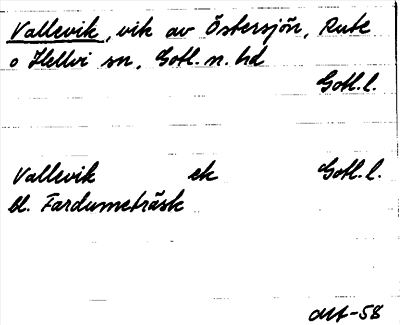 Vallevik, vik av Östersjön, Rute
o Hellvi sn, Gotl. n. hd
Gotl. l.
Vallevik ek Gotl. l.
bl. Fardumeträsk
-58